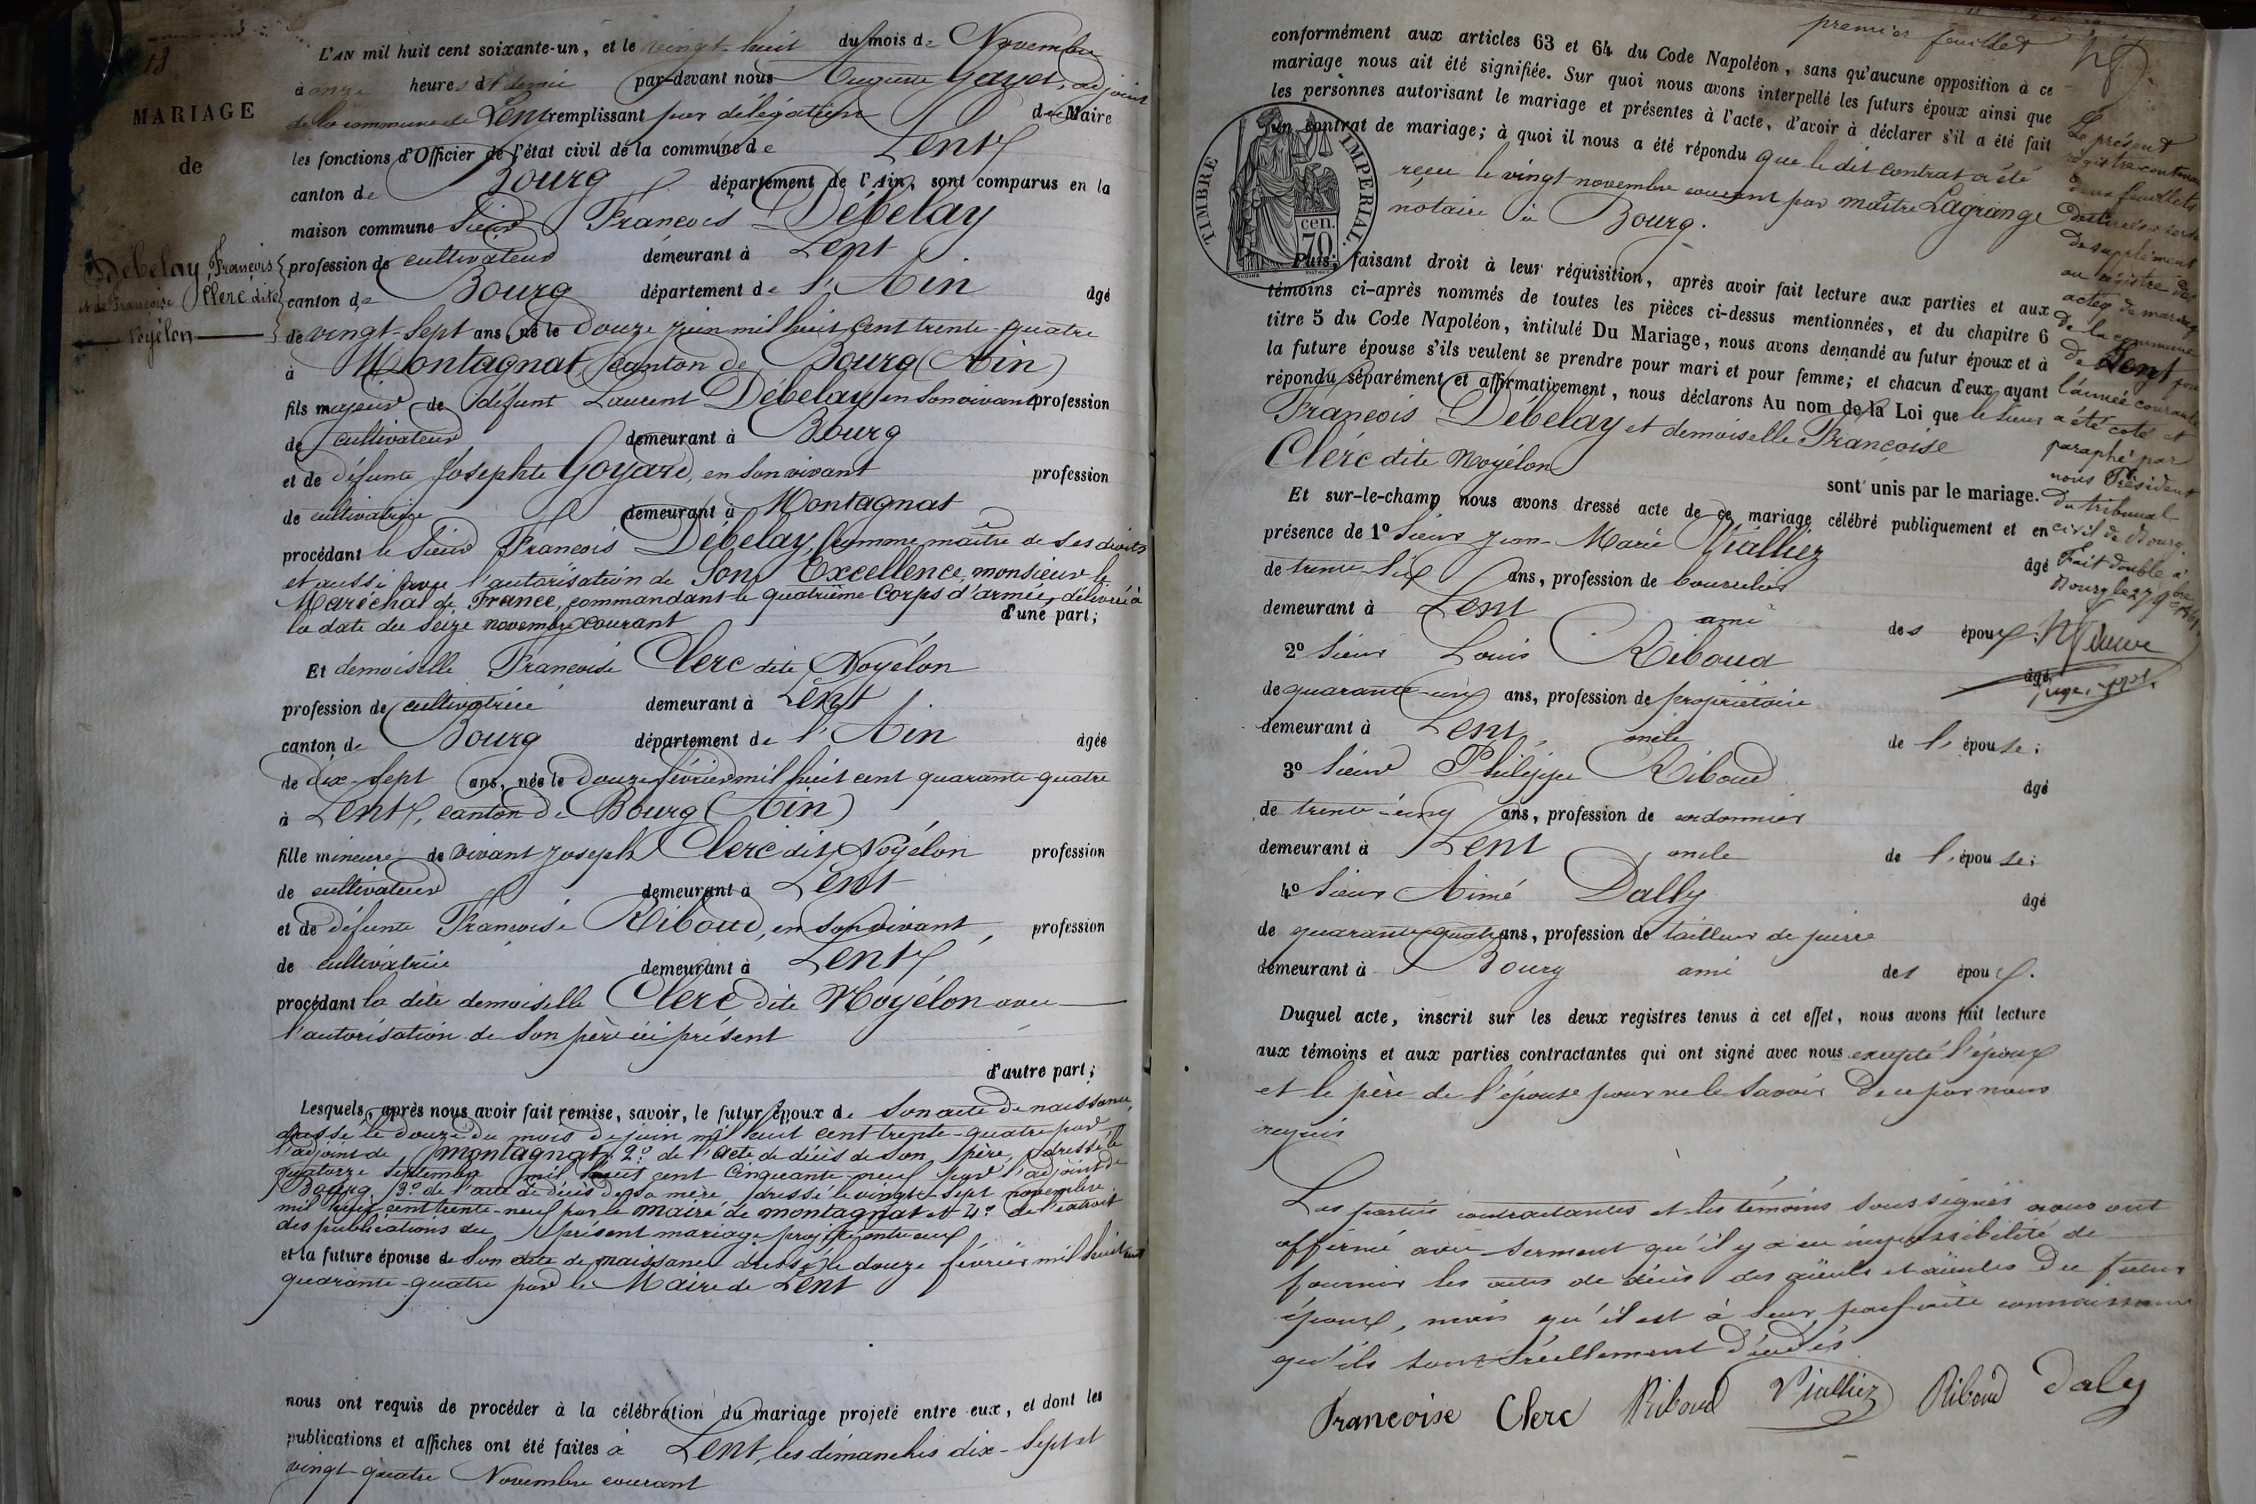 18
MARIAGE
de
Débelay François
et de Françoise Clerc dite
Noyélon
L'AN mil huit cent soixante-un, et le vingt-huit du mois de Novembre
à onze heures et demie par-devant nous Auguste Gayot, adjoint
de la commune de Lent remplissant par délégation du Maire
les fonctions d'Officier de l'état civil de la commune de Lent
canton de Bourg département de l'Ain, sont comparus en la
maison commune Sieur François Débelay
profession de cultivateur demeurant à Lent
canton de Bourg département de l'Ain âgé
de vingt-sept ans né le douze juin mil huit cent trente-quatre
à Montagnat, canton de Bourg (Ain)
fils majeur de défunt Laurent Débelay en son vivant profession
de cultivateur demeurant à Bourg
et de défunte Josephte Goyard, en son vivant profession
de cultivatrice demeurant à Montagnat
procédant le Sieur François Débelay, comme maître de ses droits
et aussi avec l'autorisation de Son Excellence, monsieur le
Maréchal de France, commandant le quatrième Corps d'armée, délivrée à
la date du seize novembre courant d'une part;
Et demoiselle Françoise Clerc dite Noyélon
profession de cultivatrice demeurant à Lent
canton de Bourg département de l'Ain âgée
de dix-sept ans, née le douze février mil huit cent quarante-quatre
à Lent, canton de Bourg (Ain)
fille mineure de vivant Joseph Clerc dit Noyélon profession
de cultivateur demeurant à Lent
et de défunte Françoise Riboud, en son vivant, profession
de cultivatrice demeurant à Lent
procédant la dite demoiselle Clerc dite Noyélon avec
l'autorisation de son père ici présent
d'autre part;
Lesquels, après nous avoir fait remise, savoir, le futur époux de son acte de naissance,
dressé le douze du mois de juin mil huit cent trente-quatre par
l'adjoint de Montagnat 2º de l'acte de décès de son père, dressé le
quatorze septembre mil huit cent cinquante-neuf par l'adjoint de
Bourg, 3º de l'acte de décès de sa mère, dressé le vingt-sept novembre
mil huit cent trente-neuf par le maire de montagnat et 4º de l'extrait
des publications du présent mariage projeté entre eux
et la future épouse de son acte de naissance dressé le douze février mil huit cent
quarante-quatre par le Maire de Lent
nous ont requis de procéder à la célébration du mariage projeté entre eux, et dont les
publications et affiches ont été faites à Lent, les dimanches dix-sept et
vingt-quatre Novembre courant
premier feuillet
conformément aux articles 63 et 64 du Code Napoléon, sans qu'aucune opposition à ce
mariage nous ait été signifiée. Sur quoi nous avons interpellé les futurs époux ainsi que
les personnes autorisant le mariage et présentes à l'acte, d'avoir à déclarer s'il a été fait
un contrat de mariage; à quoi il nous a été répondu que le dit contrat a été
reçu le vingt novembre courant par maître Lagrange
notaire à Bourg.
TIMBRE IMPÉRIAL.
cen.
70
Puis, faisant droit à leur réquisition, après avoir fait lecture aux parties et aux
témoins ci-après nommés de toutes les pièces ci-dessus mentionnées, et du chapitre 6
titre 5 du Code Napoléon, intitulé Du Mariage, nous avons demandé au futur époux et à
la future épouse s'ils veulent se prendre pour mari et pour femme; et chacun d'eux ayant
répondu séparément et affirmativement, nous déclarons Au nom de la Loi que le Sieur
François Débelay et demoiselle Françoise
Clerc dite Noyélon
sont unis par le mariage.
Et sur-le-champ nous avons dressé acte de ce mariage célébré publiquement et en
présence de 1º Sieur Jean-Marie Vialliez âgé
de trente-six ans, profession de bourrelier
demeurant à Lent ami des époux.
2º Sieur Louis Riboud âgé
de quarante-un ans, profession de propriétaire
demeurant à Lent, oncle de l'épouse;
3º Sieur Philippe Riboud âgé
de trente-cinq ans, profession de cordonnier
demeurant à Lent oncle de l'épouse;
4º Sieur Aimé Dally âgé
de quarante-quatre ans, profession de tailleur de pierre
demeurant à Bourg ami des époux.
Duquel acte, inscrit sur les deux registres tenus à cet effet, nous avons fait lecture
aux témoins et aux parties contractantes qui ont signé avec nous excepté l'époux
et le père de l'épouse pour ne le savoir de ce par nous
requis
Les parties contractantes et les témoins soussignés nous ont
affirmé avec serment qu'il y a eu impossibilité de
fournir les actes de décès des aïeuls et aïeules du futur
époux, mais qu'il est à leur parfaite connaissance
qu'ils sont réellement décédés
Francoise Clerc Riboud Vialliez Riboud Daly
Le présent
registre contenant
deux feuillets
destinés à servir
de supplément
au registre des
actes de mariage
de la commune
de Lent pour
l'année courante
a été coté et
paraphé par
nous Président
du tribunal
civil de Bourg.
Fait double à
Bourg le 27 9bre 1861.